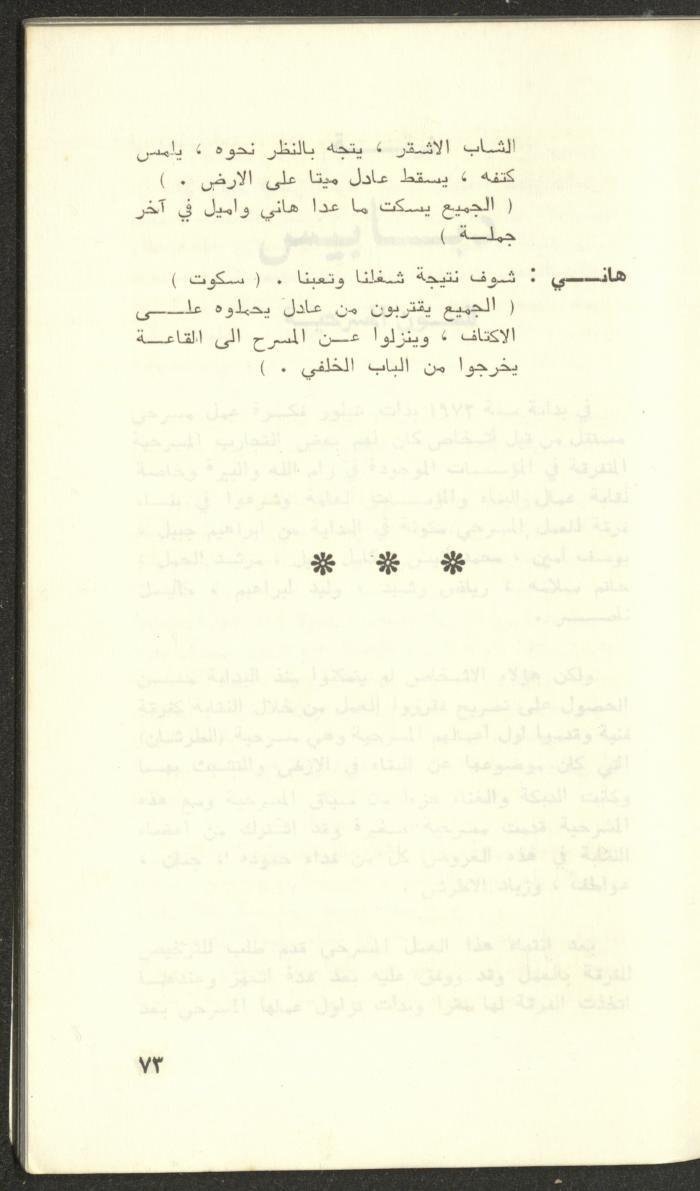 الشاب الاشقر ، يتجه بالنظر نحوه ، يلمس
كتفه ، يسقط عادل ميتا على الارض . )
( الجميع يسكت ما عدا هاني واميل في آخر
جملــة )
هانــــي : شوف نتيجة شغلنا وتعبنا . ( سكوت )
( الجميع يقتربون من عادل يحملوه علـــى
الاكتاف ، وينزلوا عــن المسرح الى القاعــة
يخرجوا من الباب الخلفي . )
❊ ❊ ❊
٧٣